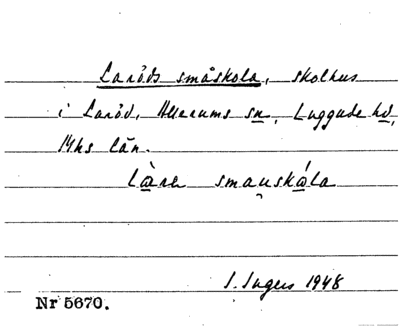 Laröds småskola, skolhus
i Laröd, Allerums sn, Luggude hd,
Mhs län.
làre smauskåla
I. Ingers 1948
Nr 5670.